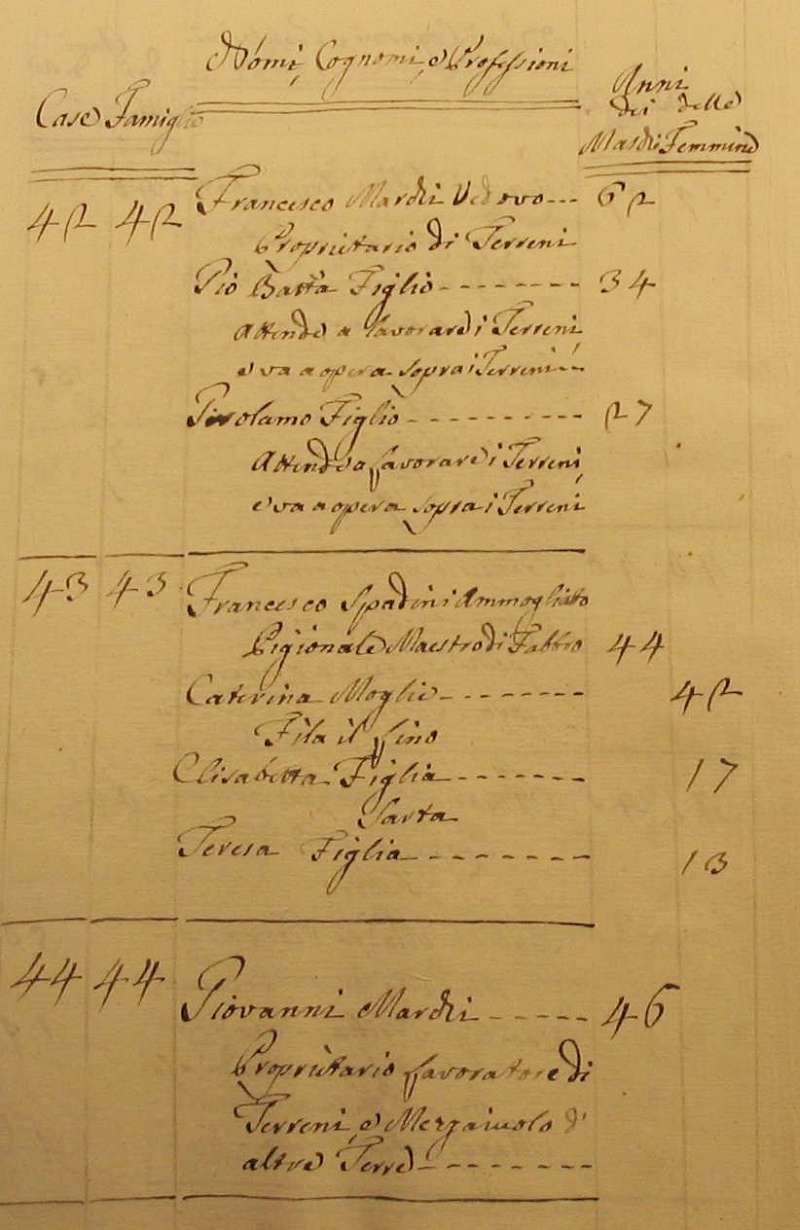 Nomi, Cognomi, e Professioni
Case Famiglie
Anni
dei delle
Maschi Femmine
42 42 Francesco Vedovo --- 62
Proprietario di Terreni
Gio Batta Figlio -------- 34
Attende a lavorare i Terreni
e va a opera sopra i Terreni --
Girolamo Figlio ---------- 27
Attende a lavorare i Terreni
e va a opera sopra i Terreni
43 43 Francesco Spadini Ammogliato
Pigionale Maestro di Fabbro 44
Caterina Moglie -------- 42
Fila il lino
Elisabetta Figlia -------- 17
Sarta
Teresa Figlia --------- 13
44 44 Giovanni ------ 46
Proprietario lavoratore di
Terreni, e Mezzaiuolo d'
altre Terre ---------